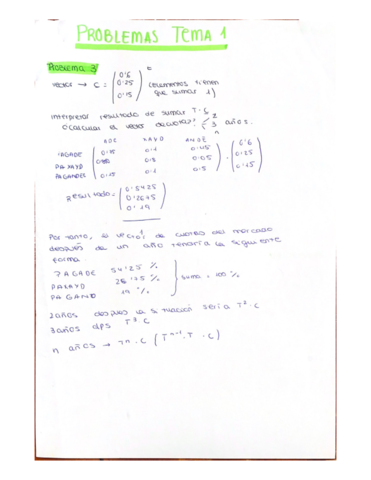 PROBLEMAS TEMA 1
PROBLEMA 3
vector → C = (0'6 0'25 0'15) (elementos tienen que sumar 1)
interpretar resultado de sumar T·C
¿Calcular el vector de cuotas? 2 3 n años.
0'1 0'05
PAXAYD 0'8 0'05 · 0'6 0'25 0'15
PAGANDE 0'1 0'5
Resultado = (0'5425 0'2675 0'19)
Por tanto, el vector de cuotas del mercado
después de un año tendría la siguiente
forma
54'25 %
PAXAYD %
PAGAND 19 %
suma = 100 %
2 años después la situación sería T² · C
3 años dps T³ · C
n años → Tⁿ · C (Tⁿ⁻¹ · T · C)